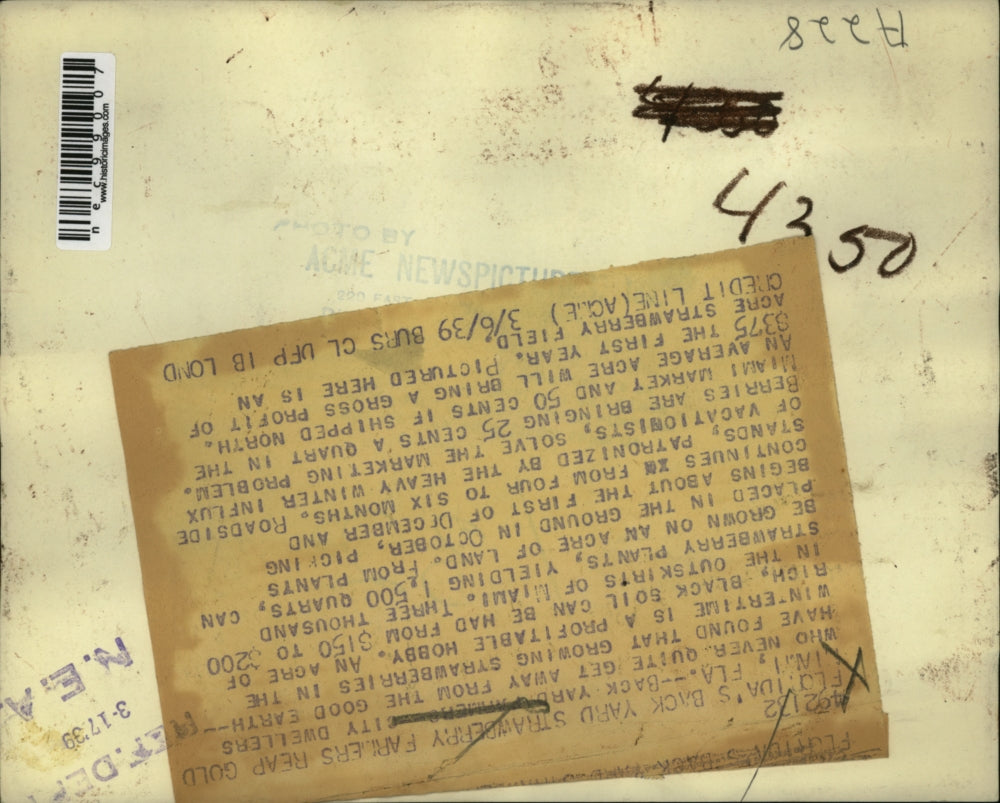 A228
4350
nec99007
www.historicimages.com
PHOTO BY
ACME NEWSPICTURES
220 EAST
492132
FLORIDA'S BACK YARD STRAWBERRY FARMERS REAP GOLD
MIAMI, FLA.--BACK YARD FARMERS CITY DWELLERS
WHO NEVER QUITE GET AWAY FROM THE GOOD EARTH--
HAVE FOUND THAT GROWING STRAWBERRIES IN THE
WINTERTIME IS A PROFITABLE HOBBY. AN ACRE OF
RICH, BLACK SOIL CAN BE HAD FROM $150 TO $200
IN THE OUTSKIRTS OF MIAMI. THREE THOUSAND
STRAWBERRY PLANTS, YIELDING 1,500 QUARTS, CAN
BE GROWN ON AN ACRE OF LAND. FROM PLANTS
PLACED IN THE GROUND IN OCTOBER, PICKING
BEGINS ABOUT THE FIRST OF DECEMBER AND
CONTINUES FROM FOUR TO SIX MONTHS. ROADSIDE
STANDS, PATRONIZED BY THE HEAVY WINTER INFLUX
OF VACATIONISTS, SOLVE THE MARKETING PROBLEM.
BERRIES ARE BRINGING 25 CENTS A QUART IN THE
MIAMI MARKET AND 50 CENTS IF SHIPPED NORTH.
AN AVERAGE ACRE WILL BRING A GROSS PROFIT OF
$375 THE FIRST YEAR. PICTURED HERE IS AN
ACRE STRAWBERRY FIELD.
CREDIT LINE(ACME) 3/6/39 BURS CL UFP IB LOND
REF. DEPT
3-17'39
N.E.A